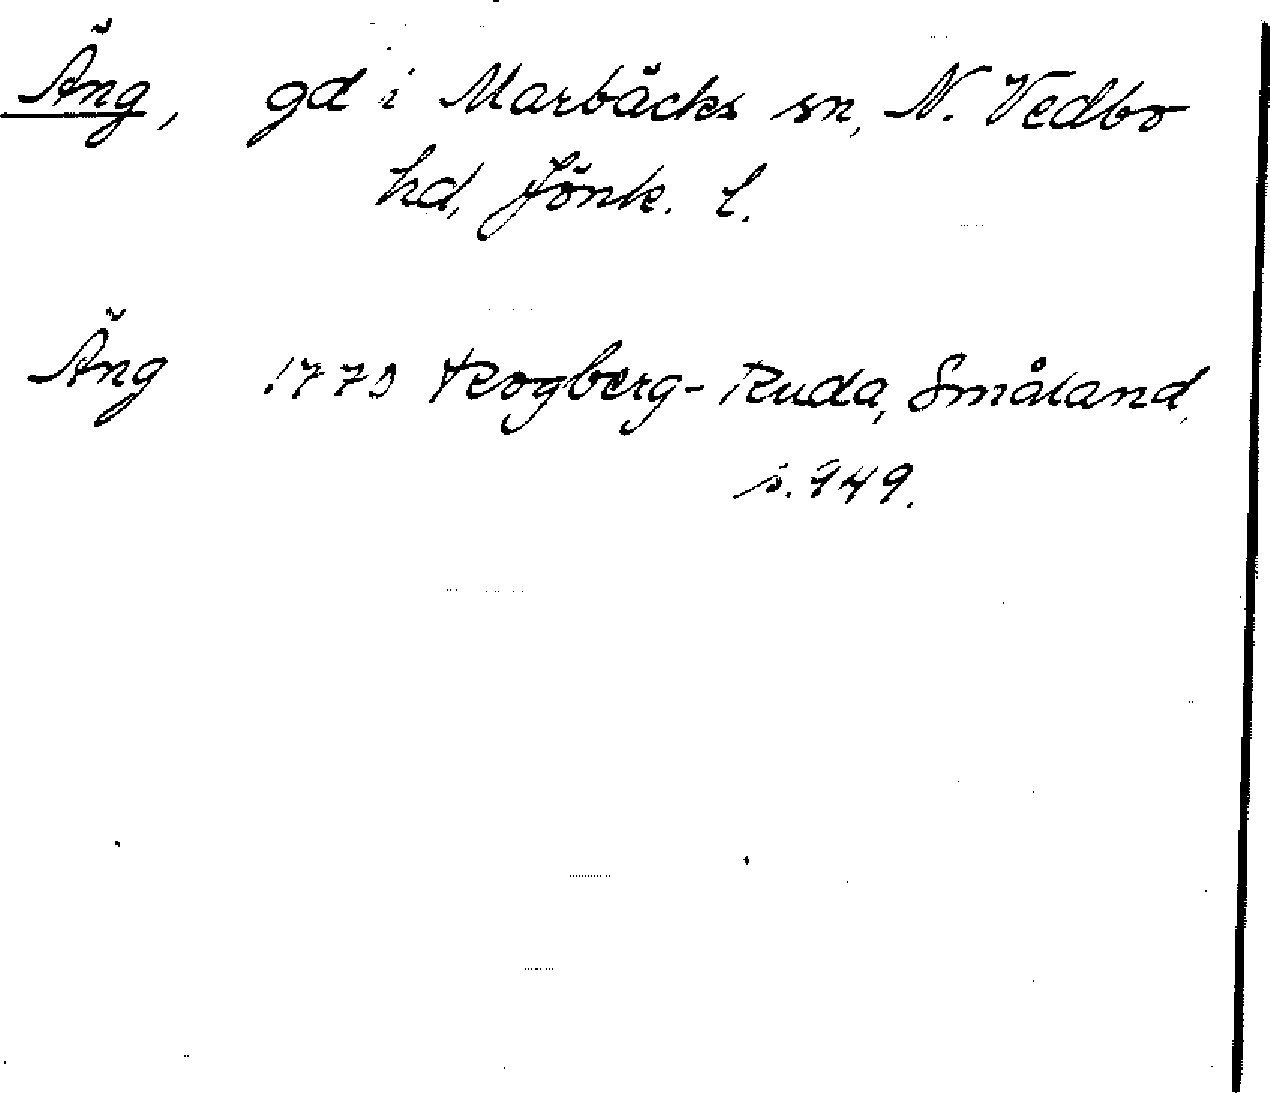 Äng, gd i Marbäcks sn, N. Vedbo
hd, Jönk. l.
Äng 1770 Rogberg-Ruda, Småland,
s. 949.